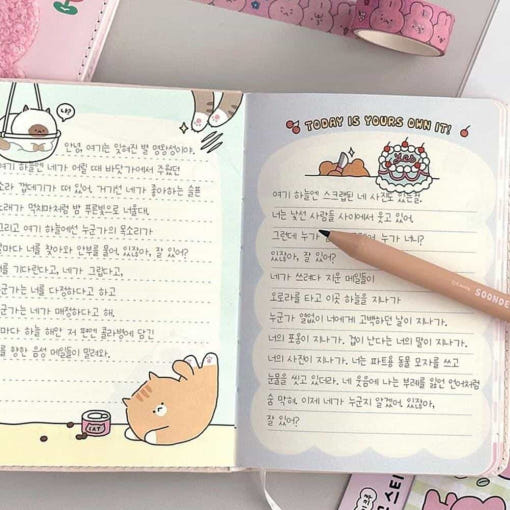 나?
안녕, 여기는 잊혀진 별 명왕성이야.
하늘엔 네가 어릴 때 바닷가에서 주웠던
소라 껍데기가 떠 있어. 거기선 네가 좋아하는 슬픈
노래가 먹치마처럼 밤 푸른빛으로 너울대.
그리고 여기 하늘에선 누군가의 목소리가
날마다 너를 찾아와 안부를 물어. 있잖아, 잘 있어?
너를 기다린다고, 네가 그립다고,
누군가는 너를 다정하다고 하고
누군가는 네가 매정하다고 해.
날마다 하늘 해안 저 편엔 콜라병에 담긴
너를 향한 음성 메일들이 밀려와.
EAT
TODAY IS YOURS OWN IT!
Yes
여기 하늘엔 스크랩된 네 사진도 있는걸.
너는 낯선 사람들 사이에서 웃고 있어.
그런데 누가 누가 너니?
있잖아, 잘 있어?
네가 쓰려다 지운 메일들이
오로라를 타고 이곳 하늘을 지나가
누군가 열없이 너에게 고백하던 날이 지나가.
너의 포옹이 지나가. 겁이 난다는 너의 말이 지나가.
너의 사진이 지나가. 너는 파티용 동물 모자를 쓰고
눈물을 씻고 있더라. 네 웃음에 나는 부레를 잃은 인어처럼
숨 막혀. 이제 네가 누군지 알겠어. 있잖아,
잘 있어?